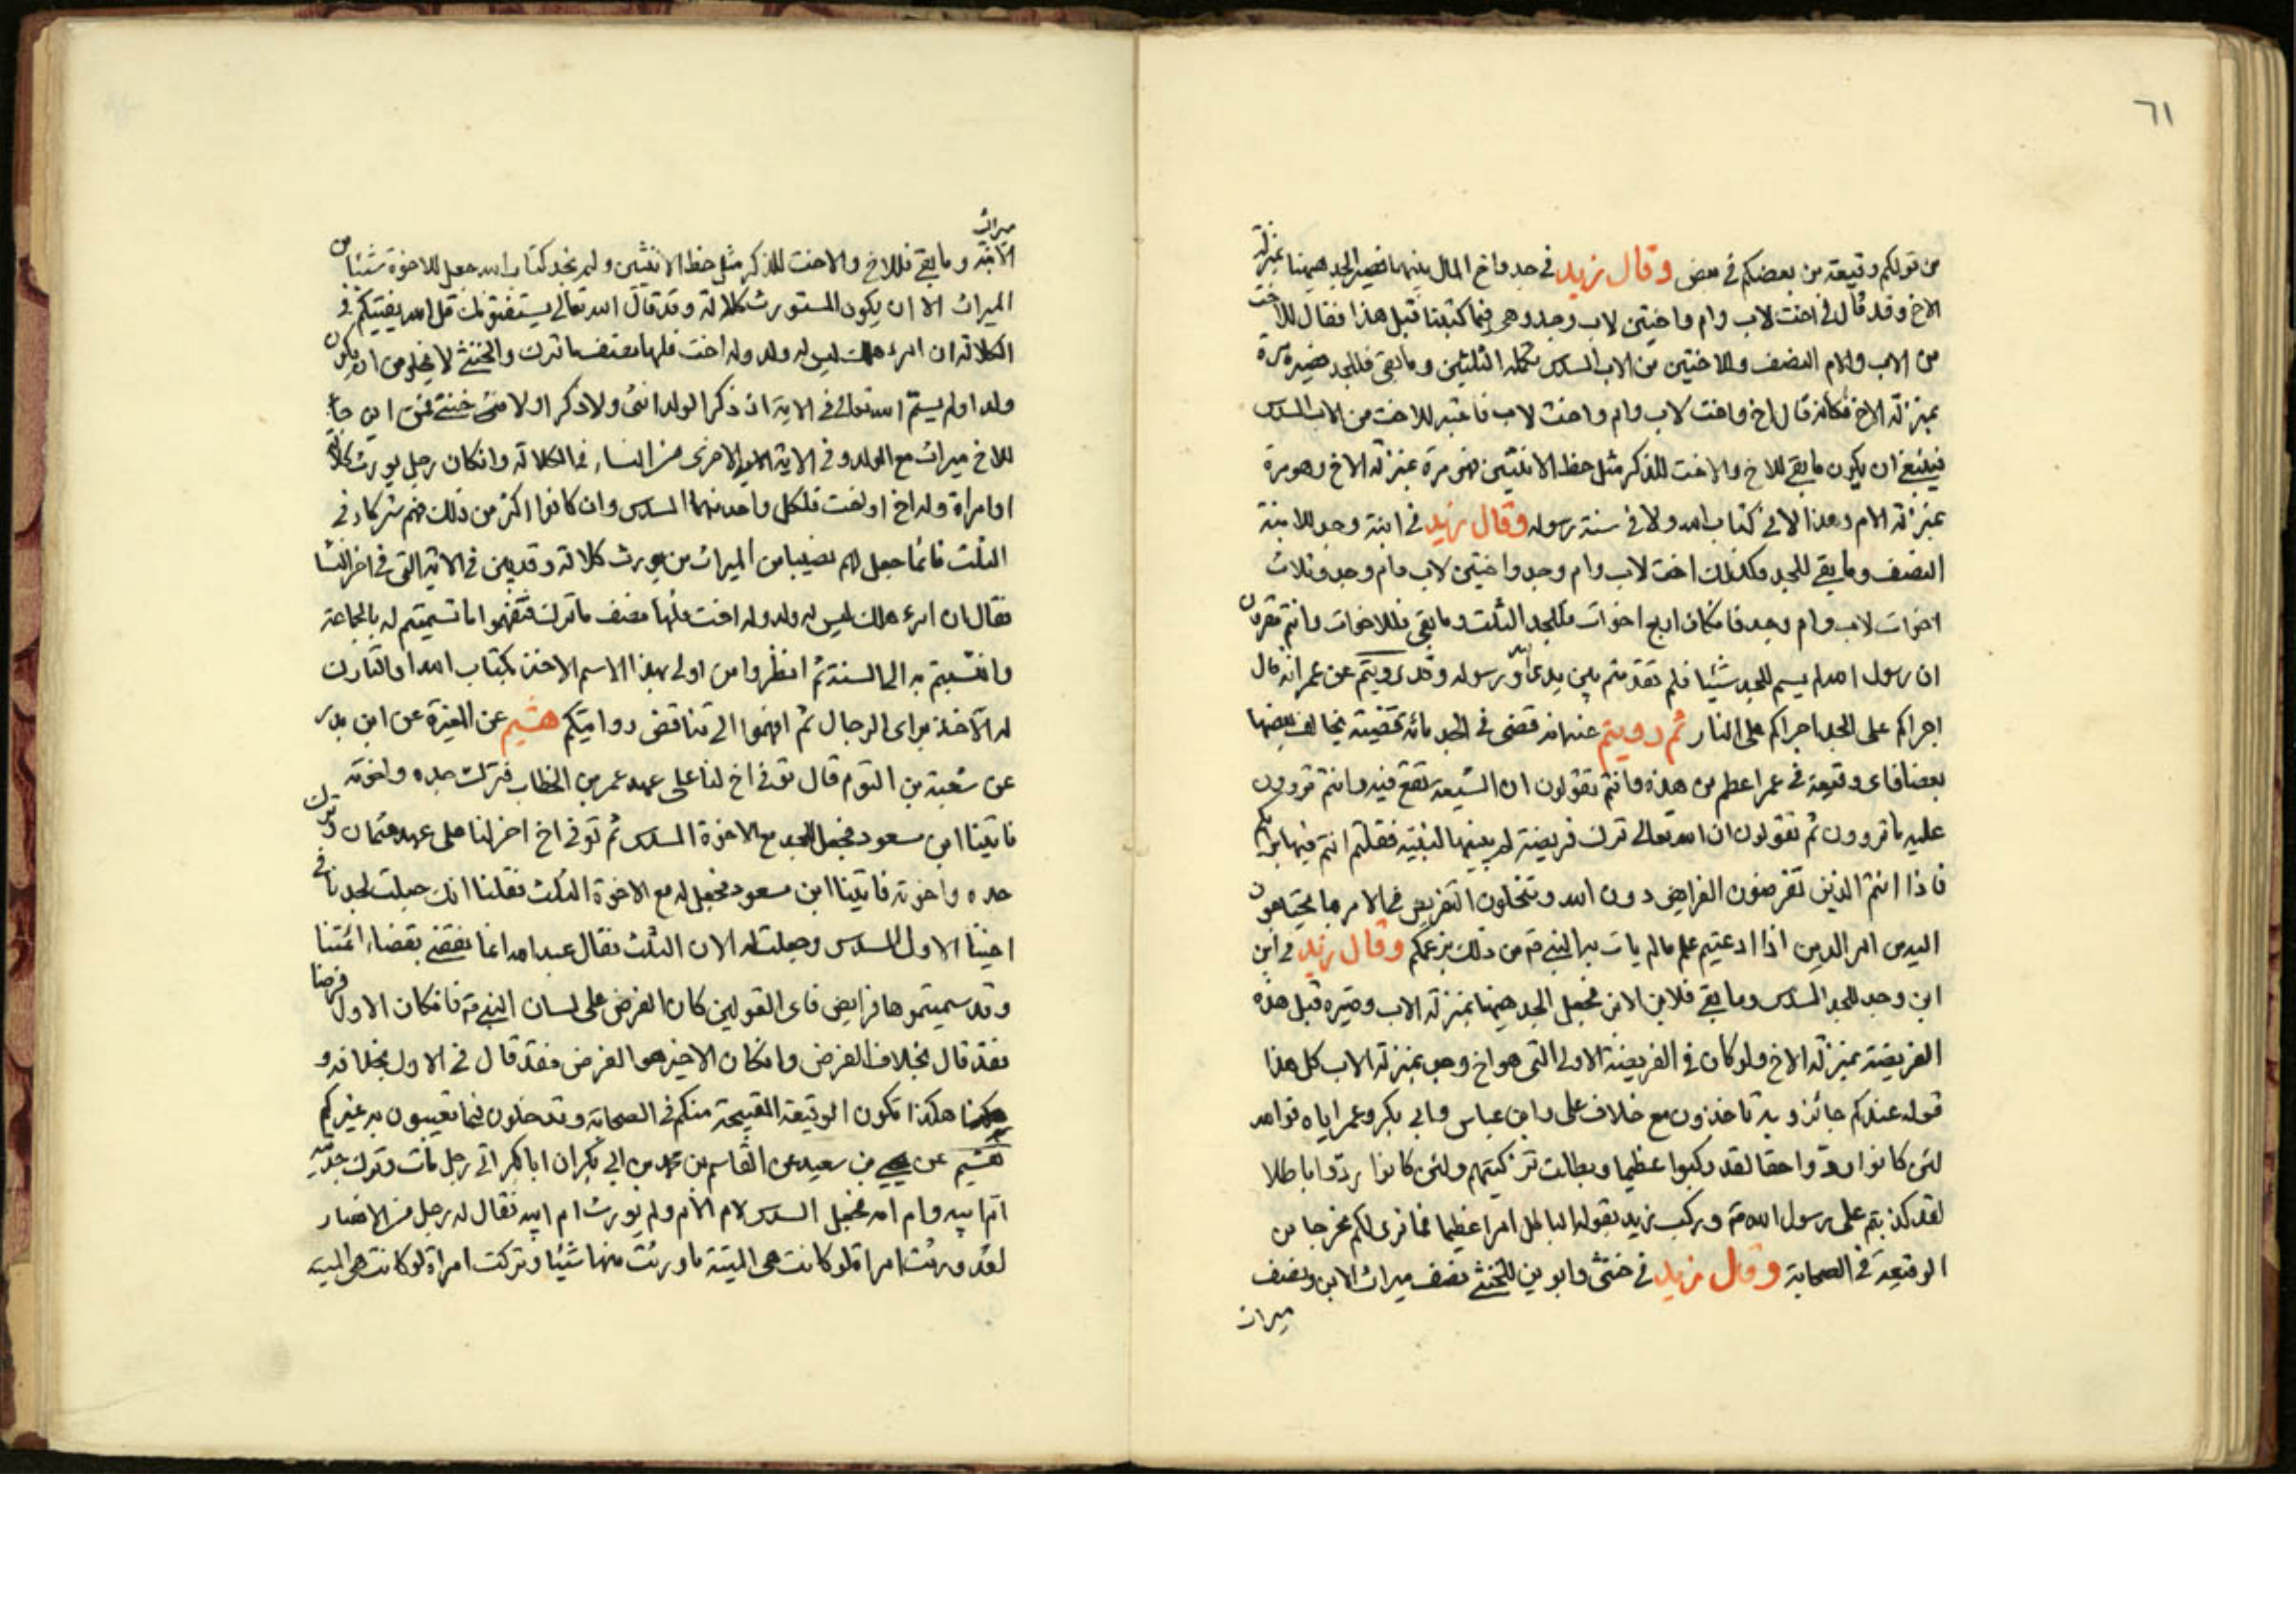 ٦١
من قولكم وقيعة من بعضكم في بعض وقال زيد في جد واخ المال بينهما فصير الجد ههنا بمنزلة
الاخ وقد قال في اخت لاب وام واختين لاب وجد وهي فيما كتبنا قبل هذا فقال للاخت
من الاب والام النصف وللاختين من الاب السدس تكملة الثلثين وما بقى فللجد فصيره مرة
بمنزلة الاخ فكانه قال اخ واخت لاب وام واخت لاب فاعتبر للاخت من الاب السدس
فينبغي ان يكون ما بقي للاخ والاخت للذكر مثل حظ الانثيين فهو مرة بمنزلة الاخ وهو مرة
بمنزلة الام وهذا لا في كتاب الله ولا في سنة رسوله وقال زيد في ابنة وجد للابنة
النصف وما بقي للجد وكذلك اخت لاب وام وجد واختين لاب وام وجد وثلاث
اخوات لاب وام وجد فان كان اربع اخوات فللجد الثلث وما بقي فللاخوات وانتم تقرون
ان رسول الله لم يسم للجد شيئا فلم تقدمتم بين يدى الله ورسوله وقد رويتم عن عمر انه قال
اجراكم على الجد اجراكم على النار ثم رويتم عنه انه قضى في الجد مائة قضية يخالف بعضها
بعضا فاى وقيعة في عمر اعظم من هذه وانتم تقولون ان الشيعة تقع فيه وانتم تروون
عليه ما تروون ثم تقولون ان الله تعالى ترك فريضة لم يبينها لنبيه فقلتم انتم فيها برايكم
فاذا انتم الذين تفرضون الفرايض دون الله وتنحلون التفريض في الامر ما يحتاجون
اليه من امر الدين اذا ادعيتم علم ما لم يات به النبي من ذلك بزعمكم وقال زيد في ابن
ابن وجد للجد السدس وما بقي فلابن الابن فجعل الجد ههنا بمنزلة الاب وصيره قبل هذه
الفريضة بمنزلة الاخ ولو كان في الفريضة الاولى التي هو اخ وهو بمنزلة الاب كل هذا
قوله عندكم جائز وبه تاخذون مع خلاف على وابن عباس وابي بكر وعمر اياه فوالله
لئن كانوا ردوا حقا لقد ركبوا عظيما وبطلت تزكيتهم ولئن كانوا ردوا باطلا
لقد كذبتم على رسول الله وركب زيد بقوله الباطل امرا عظيما فما نرى لكم مخرجا من
الوقيعة في الصحابة وقال زيد في خنثى وابوين للخنثي نصف ميراث الابن ونصف
ميراث
ميراث
الابنة وما بقي فللاخ والاخت للذكر مثل حظ الانثيين ولم نجد كتاب الله جعل للاخوة شيئا من
الميراث الا ان يكون المستورث كلالة وقد قال الله تعالى يستفتونك قل الله يفتيكم في
الكلالة ان امرء هلك ليس له ولد وله اخت فلها نصف ما ترك والخنثي لا يخلو من ان يكون
ولدا ولم يسم الله تعالى في الاية اذ ذكر الولد انثى ولا ذكر اولا خنثى فمن اين جاء
للاخ ميراث مع الولد وفي الاية الاولى الاخرى من النساء في الكلالة وان كان رجل يورث كلالة
او امراة وله اخ او اخت فلكل واحد منهما السدس وان كانوا اكثر من ذلك فهم شركاء في
الثلث فانما جعل لهم نصيبا من الميراث من يورث كلالة وقد بين في الاية التي في اخر النسا
فقال ان امرء هلك ليس له ولد وله اخت فلها نصف ما ترك فتفهموا ما تسميتم له بالجماعة
وانتسبتم به الى السنة ثم انظروا من اولى بهذا الاسم الاخذ بكتاب الله او التارك
له الآخذ براى الرجال ثم افهموا الى تناقض روايتكم هشيم عن المغيرة عن ابن بدر
عن شعبة بن التوم قال توفى اخ لنا على عهد عمر بن الخطاب فترك جده واخوته
فاتينا ابن مسعود فجعل للجد مع الاخوة السدس ثم توفى اخ اخر لنا على عهد عثمان وترك
جده واخوته فاتينا ابن مسعود فجعل له مع الاخوة الثلث فقلنا انك جعلت لجدنا في
اخينا الاول السدس وجعلت له الان الثلث فقال عبد الله انما نقضي بقضاء ائمتنا
وقد سميتموها فرايض فاى القولين كان الفرض على لسان النبي فان كان الاول فرضا
فقد قال بخلاف الفرض وان كان الاخير هو الفرض فقد قال في الاول بخلافه و
هكذا تكون الوقيعة القبيحة منكم في الصحابة وتدخلون فيما تعيبون به غيركم
هشيم عن يحيى بن سعيد عن القاسم بن محمد بن ابي بكر ان ابا بكر اتى رجل مات وترك جدتيه
ام ابيه وام امه فجعل السدس لام الام ولم يورث ام ابيه فقال له رجل من الانصار
لقد ورثت امراة لو كانت هى الميتة ما ورثت منها شيئا وتركت امراة لو كانت هي الميتة